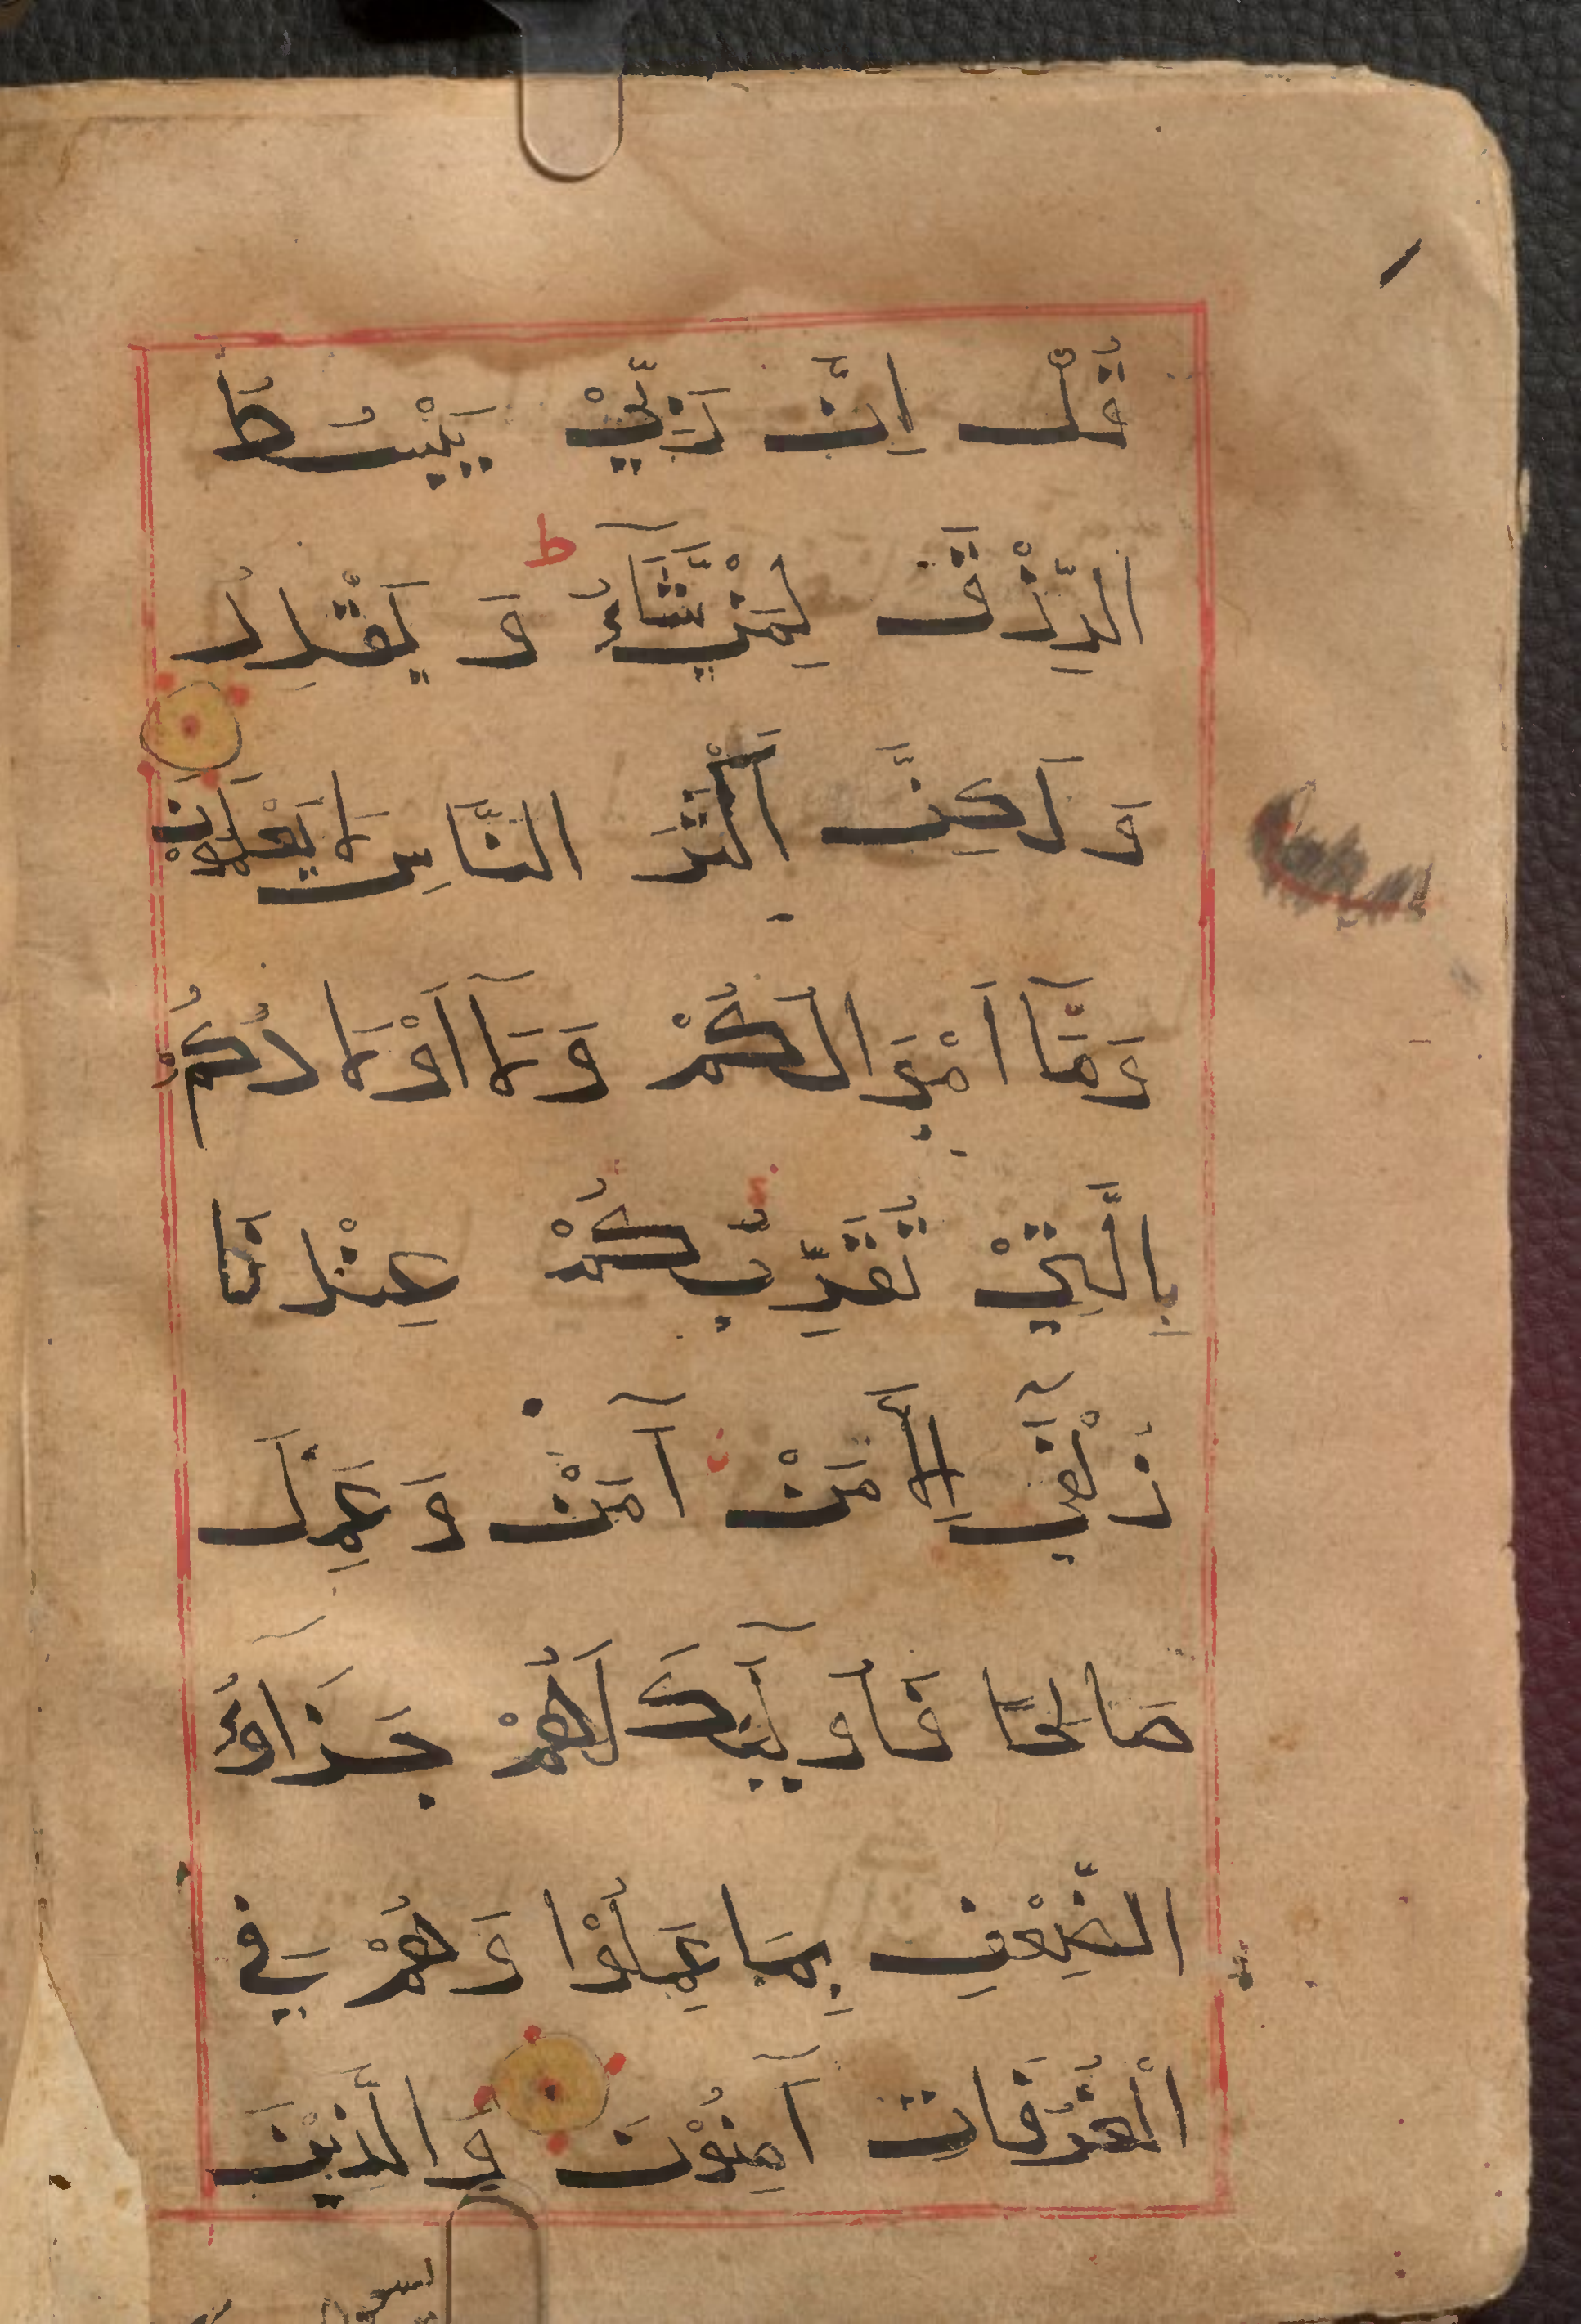 قُلْ اِنَّ رَبِّيْ يَبْسُطُ
الرِّزْقَ لِمَنْ يَّشَآءُ ط وَ يَقْدِرُ
وَ لَكِنَّ اَكْثَرَ النَّاسِ لَا يَعْلَمُوْنَ
وَمَآ اَمْوَالُكُمْ وَلَآ اَوْلَادُكُمْ
بِالَّتِيْ تُقَرِّبُكُمْ عِنْدَنَا
زُلْفٰٓى اِلَّا مَنْ آمَنَ وَ عَمِلَ
صَالِحًا فَأُولَٰٓئِكَ لَهُمْ جَزَآؤُ
الضِّعْفِ بِمَا عَمِلُوْا وَ هُمْ فِي
الْغُرُفَاتِ آمِنُوْنَ وَ الَّذِيْنَ